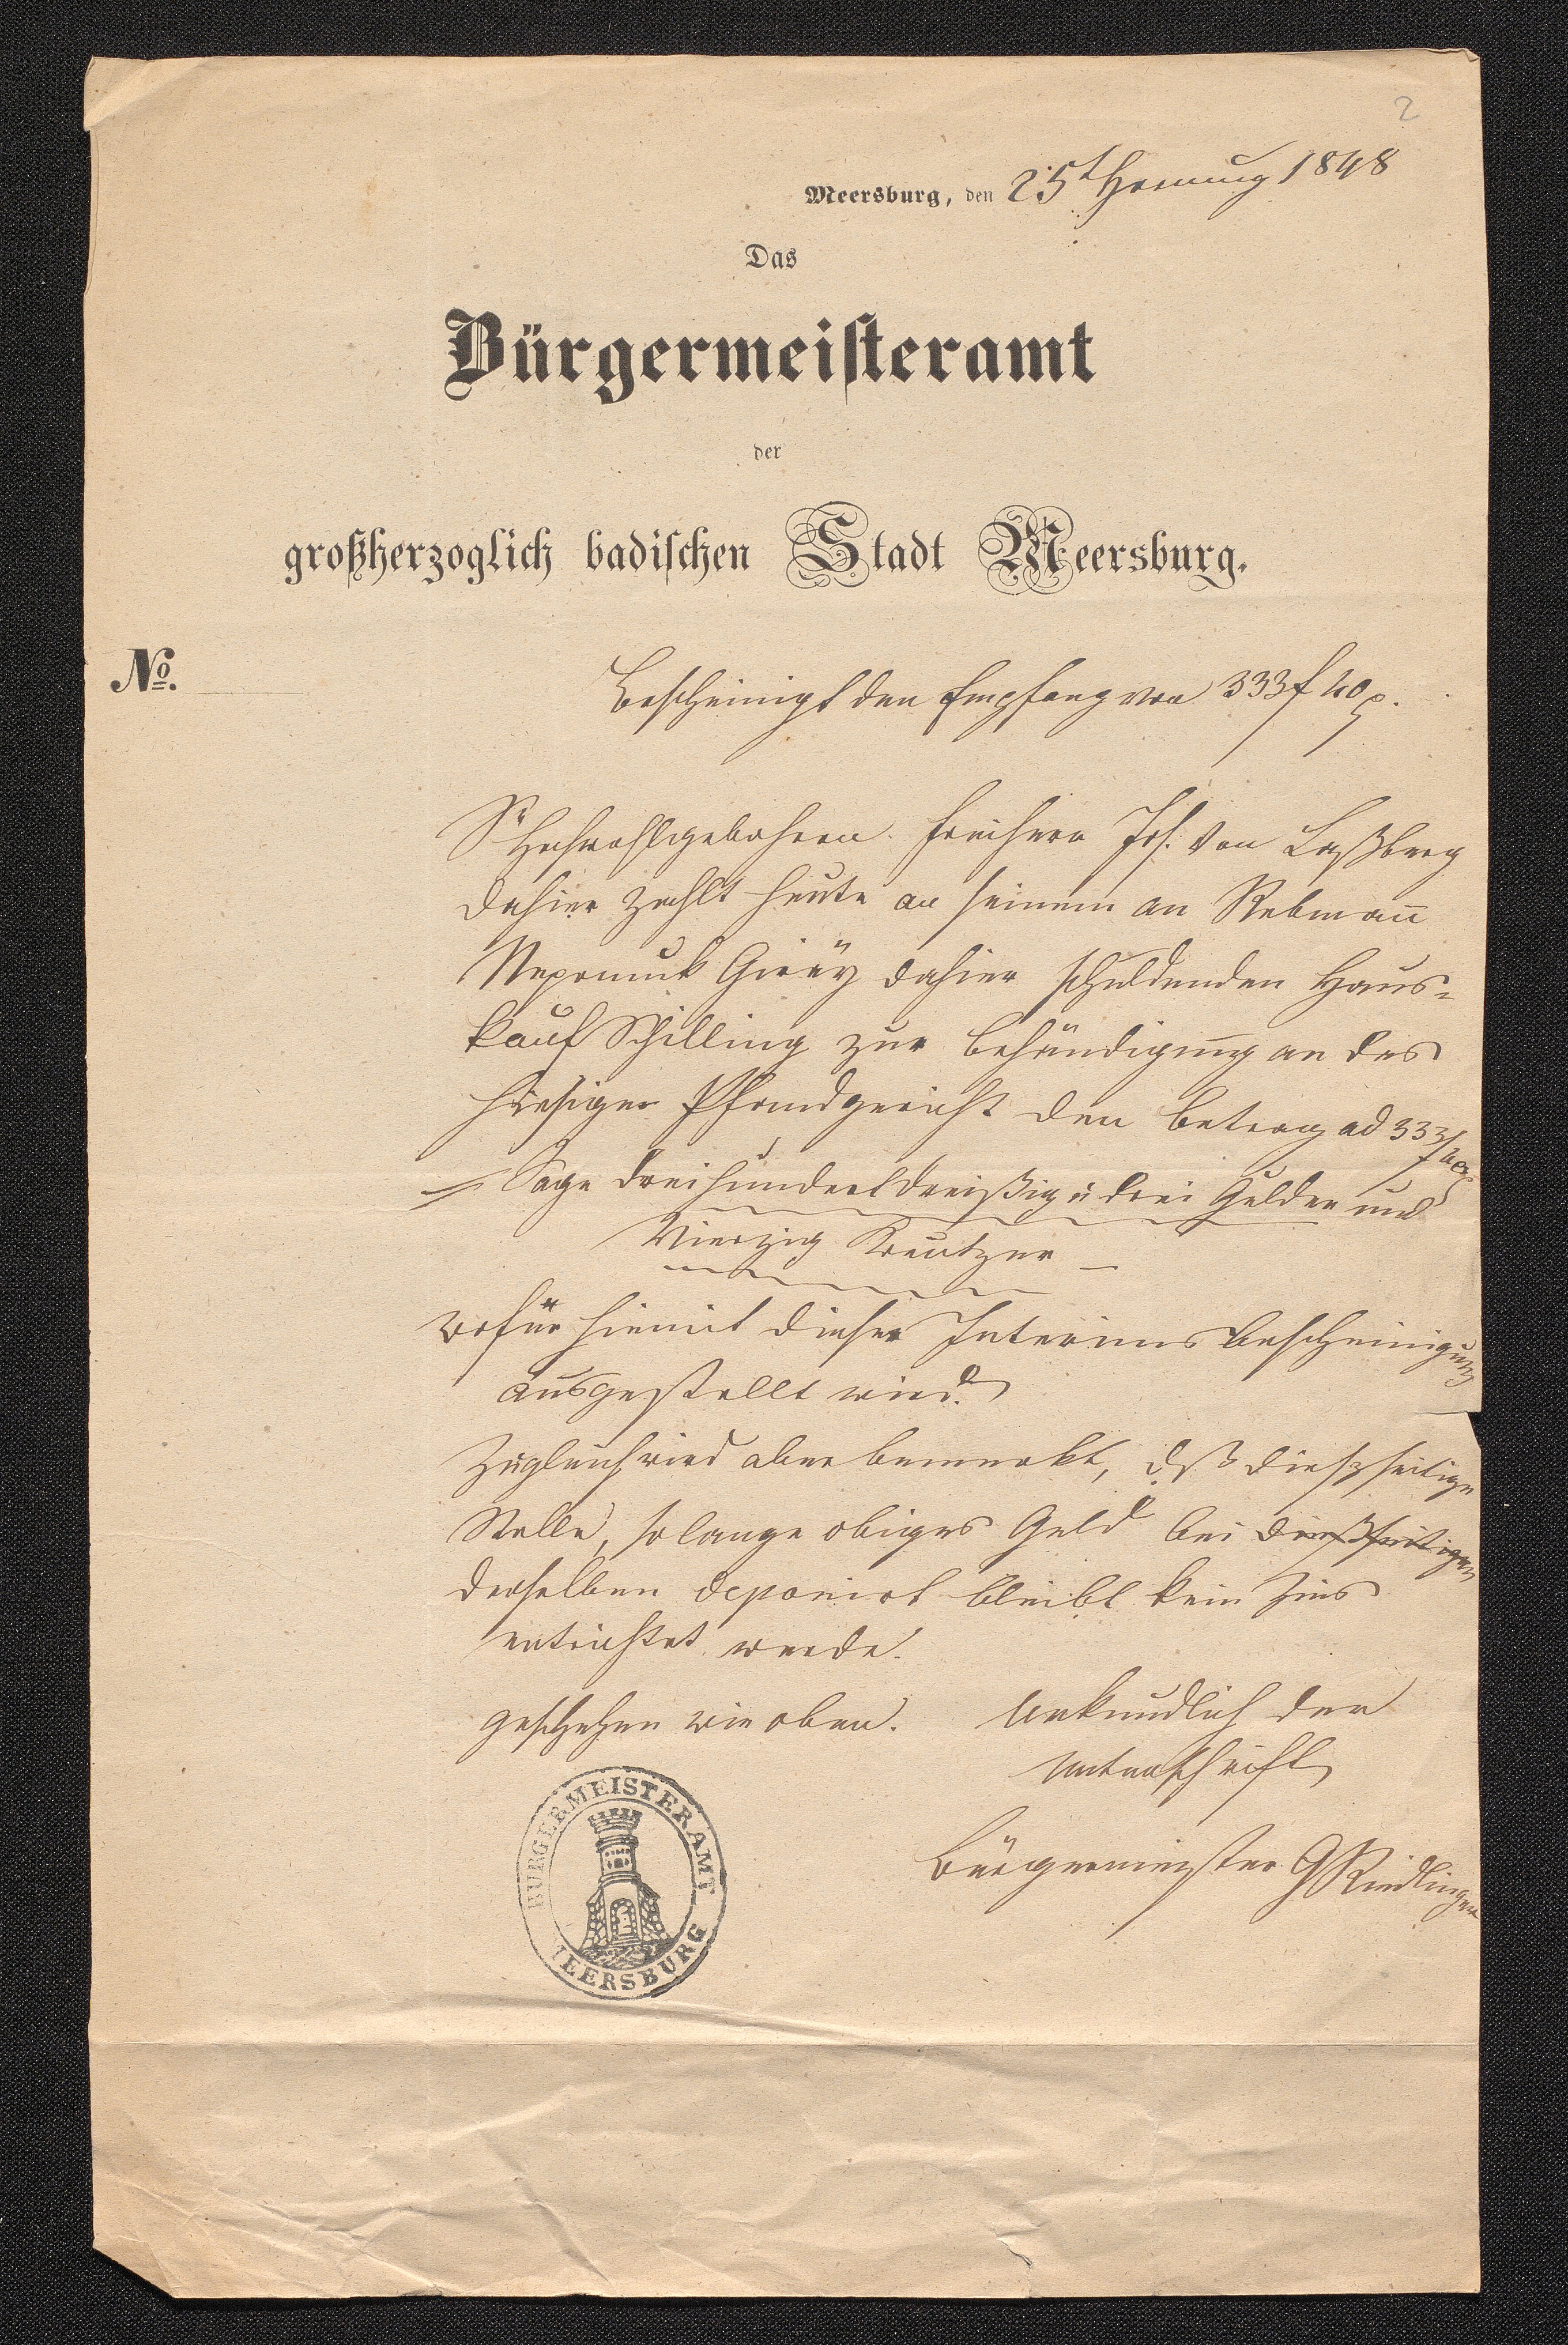 2
Meersburg, den 25t Hornung 1848
Das
Bürgermeisteramt
der
großherzoglich badischen Stadt Meersburg.
No.
Bescheinigt den Empfang von 333 f 40 x.
Sr Hochwohlgebohren Freiherr Jos. von Laßberg
dahier zahlt heute an seinem an Rebmañ
Nepomuk dahier schuldenden Haus-
kauf Schilling zur Behändigung an das
hiesige Pfandgericht den Betrag ad 333 f 40 x
Sage dreihundert dreißig u drei Gulden und
Vierzig Kreutzer
wofür hiemit diese Interims Bescheinigung
ausgestellt wird.
Zugleich wird aber bemerkt, daß dießseitige
Stelle, solange obiges Geld bei dießseitigen
derselben deponirt bleibt kein Zins
entrichtet werde.
geschehen wie oben. Urkundlich der
Unterschrift
Bürgermeister
BÜRGERMEISTERAMT
MEERSBURG